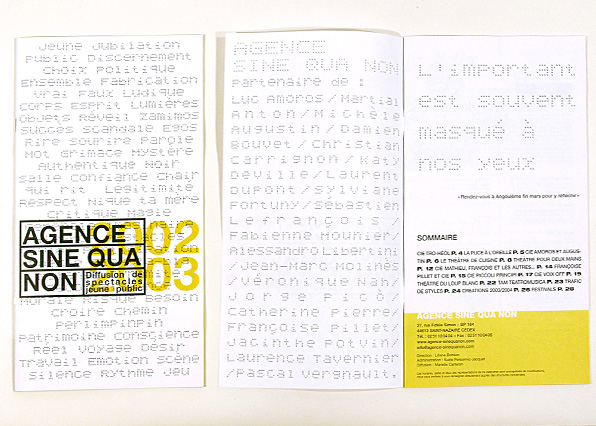 Jeune Jubilation
Public Discernement
Choix Politique
Ensemble Fabrication
Vrai Faux Ludique
Corps Esprit Lumières
Objets Réveil Zamimos
Succes Scandale Egos
Rire Sourire Parole
Mot Grimace Mystère
Authentique Noir
Salle Confiance Chair
qui rit Légitimité
Respect Nique ta mère
Critique Magie
2002
03
AGENCE
SINE QUA
NON
Diffusion de
spectacles
jeune public
Morale Risque Besoin
Croire Chemin
Perlimpinpin
Patrimoine Conscience
Réel Voyage Désir
Travail Emotion Scène
Silence Rythme Jeu
AGENCE
SINE QUA NON
Partenaire de :
Luc Amoros/Martial
Anton/Michèle
Augustin/Damien
Bouvet/Christian
Carrignon/Katy
Deville/Laurent
Dupont/Sylviane
Fortuny/Sébastien
Lefrançois
Fabienne Mounier/
Alessandro Libertini
/Jean-Marc Molinès
/Véronique Nah/
Jorge Picò/
Catherine Pierre/
Françoise Pillet/
Jacinthe Potvin/
Laurence Tavernier
/Pascal Vergnault.
L'important
est souvent
masqué à
nos yeux
«Rendez-vous à Angoulême fin mars pour y réfléchir»
SOMMAIRE
CIE TRO-HÉOL P. 4 LA PUCE À L'OREILLE P. 5 CIE AMOROS ET AUGUS-
TIN P. 6 LE THÉÂTRE DE CUISINE P. THÉÂTRE POUR DEUX MAINS
P. 12 CIE MATHIEU, FRANÇOIS ET LES AUTRES... P. 14 FRANÇOISE
PILLET ET CIE P. 15 CIE PICCOLI PRINCIPI P. 17 CIE DE VOIX OFF P. 19
THÉÂTRE DU LOUP BLANC P. 22 TAM TEATROMUSICA P. 23 TRAFIC
DE STYLES P. 24 CRÉATIONS 2003/2004 P. 26 FESTIVALS P. 26
AGENCE SINE QUA NON
44613 SAINT-NAZAIRE CEDEX
www.agence-sinequanon.com
info@agence-sinequanon.com